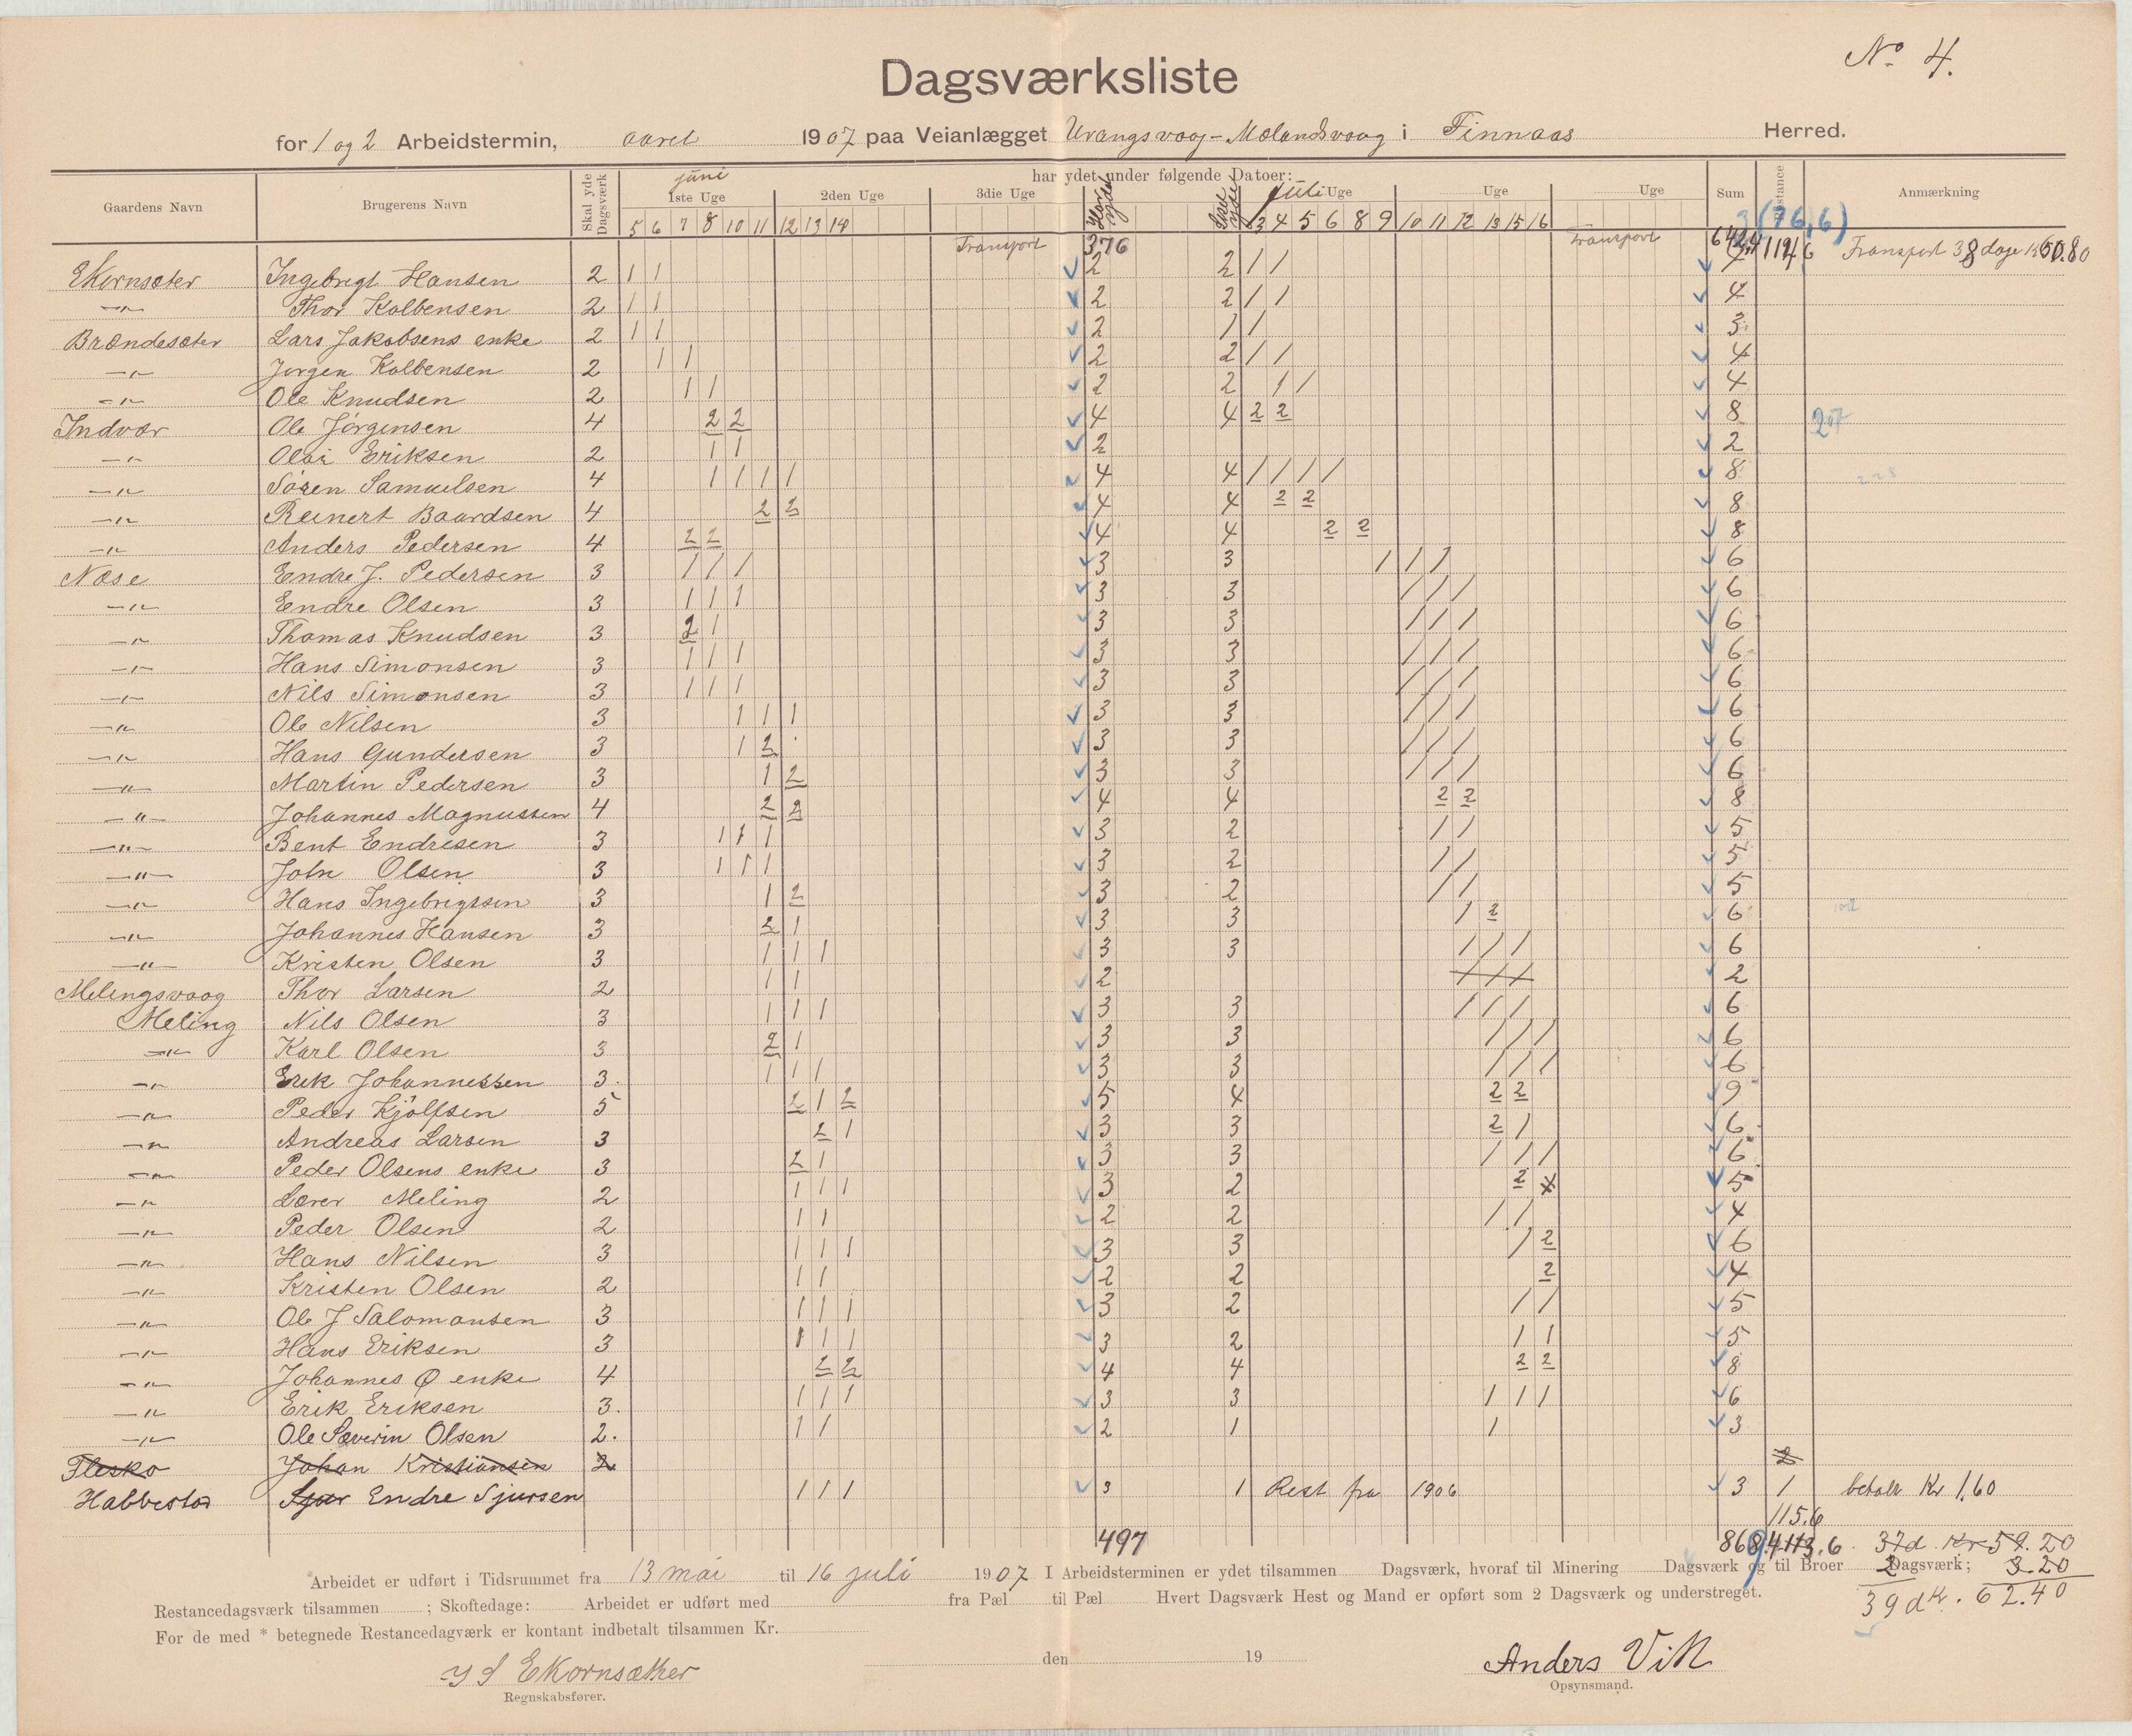 No 4.
Dagsværksliste
for 1 og 2 Arbeidstermin, aaret 1907 paa Veianlægget Urangsvaag - Mælandsvaag i Finnaas Herred.
Gaardens Navn Brugerens Navn Skal yde Dagsværk har ydet under følgende Datoer: Sum Restance Anmærkning
juni 1ste Uge 2den Uge 3die Uge Har ydet Skal yde Juli Uge Uge Uge
5 6 7 8 10 11 12 13 14 3 4 5 6 8 9 10 11 12 13 15 16 (76,6)
Transport 376 Transport 114,6 Transport 38 dage Kr 60.80
Ekornsæter Ingebrigt Hansen 2 1 1 2 2 1 1 4
-"- Thor Kolbensen 2 1 1 2 2 1 1 4
Brændesæter Lars Jakobsens enke 2 1 1 2 1 1 3
-"- Jørgen Kolbensen 2 1 1 2 2 1 1 4
-"- Ole Knudsen 2 1 1 2 2 1 1 4
Indvær Ole Jörgensen 4 2 2 4 4 2 2 8
-"- Olai Eriksen 2 1 1 2 2
-"- Sören Samuelsen 4 1 1 1 1 4 4 1 1 1 1 8
-"- Reinert Baardsen 4 2 2 4 4 2 2 8
-"- Anders Pedersen 4 2 2 4 4 2 2 8
Næse Endre J. Pedersen 3 1 1 1 3 3 1 1 1 6
-"- Endre Olsen 3 1 1 1 3 3 1 1 1 6
-"- Thomas Knudsen 3 2 1 3 3 1 1 1 6
-"- Hans Simonsen 3 1 1 1 3 3 1 1 1 6
-"- Nils Simonsen 3 1 1 1 3 3 1 1 1 6
-"- Ole Nilsen 3 1 1 1 3 3 1 1 1 6
-"- Hans Gundersen 3 1 2 3 3 1 1 1 6
-"- Martin Pedersen 3 1 2 3 3 1 1 1 6
-"- Johannes Magnussen 4 2 2 4 4 2 2 8
-"- Bent Endresen 3 1 1 1 3 2 1 1 5
-"- John Olsen 3 1 1 1 3 2 1 1 5
-"- Hans Ingebrigtsen 3 1 2 3 2 1 1 5
-"- Johannes Hansen 3 2 1 3 3 1 2 6
-"- Kristen Olsen 3 1 1 1 3 3 1 1 1 6
Melingsvaag Thor Larsen 2 1 1 2 2
Meling Nils Olsen 3 1 1 1 3 3 1 1 1 6
-"- Karl Olsen 3 2 1 3 3 1 1 1 6
-"- Erik Johannessen 3. 1 1 1 3 3 1 1 1 6
-"- Peder Kjölfsen 5 2 1 2 5 4 2 2 9
-"- Andreas Larsen 3 2 1 3 3 2 1 6
-"- Peder Olsens enke 3 2 1 3 3 1 1 1 6
-"- Lærer Meling 2 1 1 1 3 2 2 5
-"- Peder Olsen 2 1 1 2 2 1 1 4
-"- Hans Nilsen 3 1 1 1 3 3 1 2 6
-"- Kristen Olsen 2 1 1 2 2 2 4
-"- Ole J Salomonsen 3 1 1 1 3 2 1 1 5
-"- Hans Eriksen 3 1 1 1 3 2 1 1 5
-"- Johannes Ø enke 4 2 2 4 4 2 2 8
-"- Erik Eriksen 3. 1 1 1 3 3 1 1 1 6
-"- Ole Severin Olsen 2. 1 1 2 1 1 3
Flesko Johan Kristiansen 2 2
Habbestad Endre Sjursen 1 1 1 3 1 Rest fra 1906 3 1 betalt Kr 1.60
115.6
497 113.6 37d Kr 59.20
Arbeidet er udført i Tidsrummet fra 13 mai til 16 juli 1907 I Arbeidsterminen er ydet tilsammen Dagsværk, hvoraf til Minering Dagsværk og til Broer Dagsværk; 2 3.20
Restancedagsværk tilsammen ; Skoftedage: Arbeidet er udført med fra Pæl til Pæl Hvert Dagsværk Hest og Mand er opført som 2 Dagsværk og understreget. 39 d Kr. 62.40
For de med * betegnede Restancedagværk er kontant indbetalt tilsammen Kr.
Ekornsæther den 19 Anders Vik
Regnskabsfører. Opsynsmand.